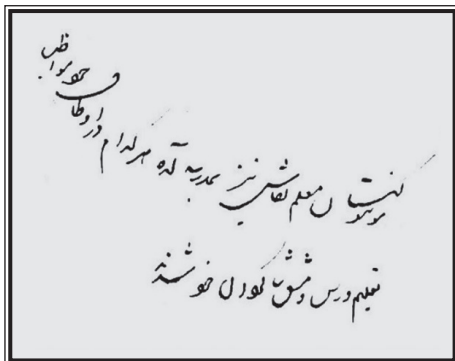 موسیو کنستان معلم نقاشی نیز بمدرسه آمده هر کدام در اوطاق خود مواظب
تعلیم درس و مشق شاگردان خود شدند